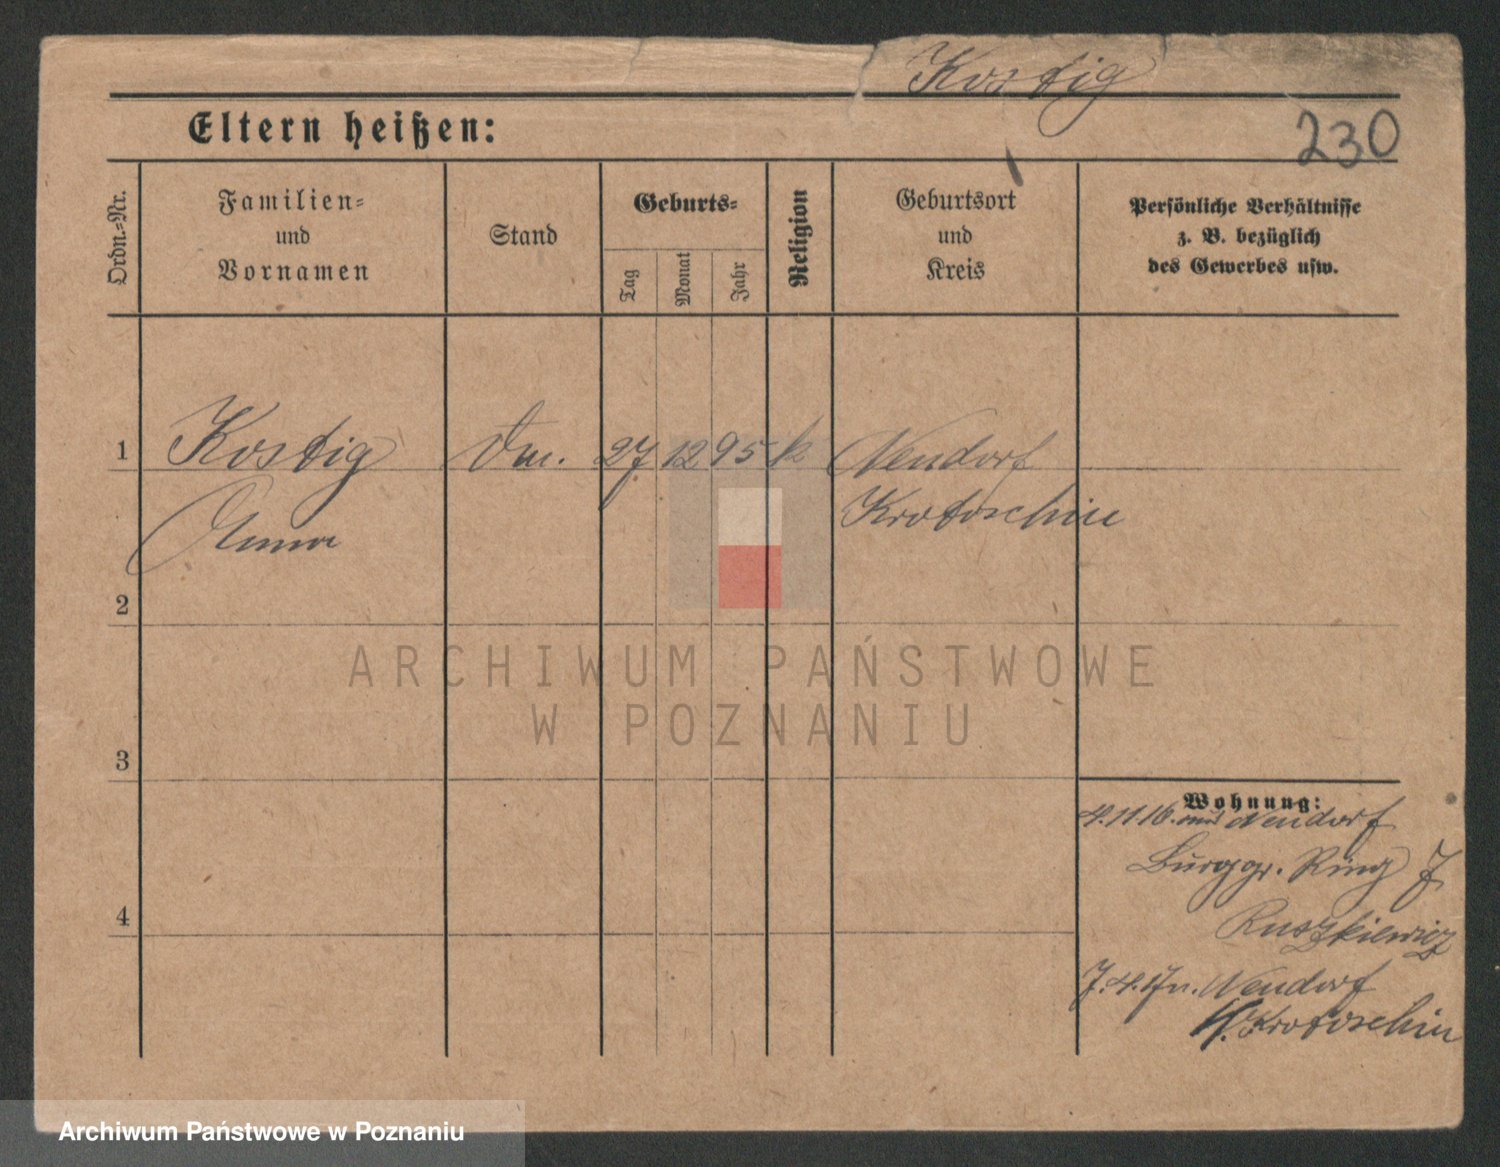 Kostig
230
Eltern heißen:
Ordn.=Nr.
Familien=
und
Vornamen
Stand
Geburts=
Tag
Monat
Jahr
Religion
Geburtsort
und
Kreis
Persönliche Verhältnisse
z. B. bezüglich
des Gewerbes usw.
1
Kostig
27 12 95 k
Neudorf
Anna
Krotoschin
2
ARCHIWUM PAŃSTWOWE
W POZNANIU
3
Wohnung:
4.11.16. aus Neudorf
Burggr. Ring 7
Ruszkiewicz
4
7.4.17 n. Neudorf
K. Krotoschin
Archiwum Państwowe w Poznaniu